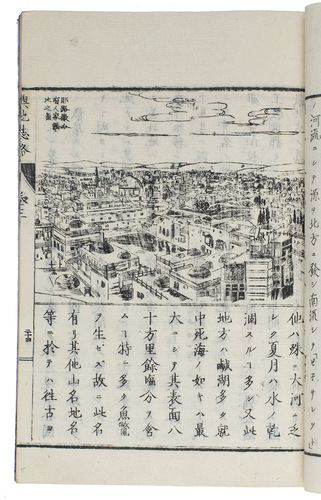 ノ河流ニシテ源ヲ北方ニ發シ南流シ
比之圖
他ハ殊ニ大河ニ乏
シク夏月ハ水ノ乾
涸スル多シ又此
地方ハ鹹湖多ク就
中死海ノ如キハ最
大ニシテ其表面八
十方里餘鹽分ヲ含
ムヿ特ニ多ク魚鼈
ヲ生セス故ニ此名
有リ其他山名地名
等ニ於テハ往古
輿地誌略